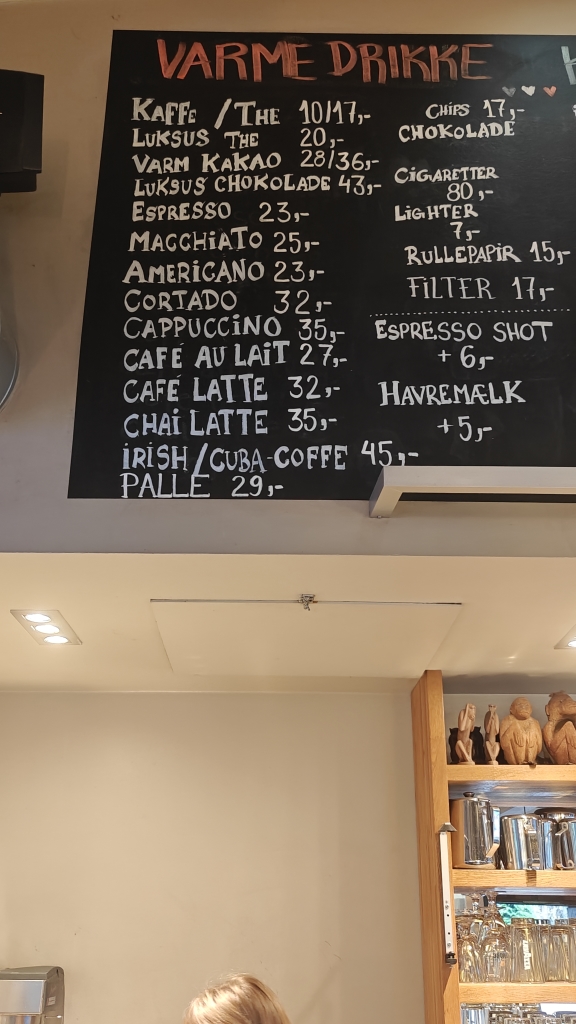 VARME DRIKKE
KAFFE / THE 10/17,-
LUKSUS THE 20,-
VARM KAKAO 28/36,-
LUKSUS CHOKOLADE 43,-
ESPRESSO 23,-
MACCHIATO 25,-
AMERICANO 23,-
CORTADO 32,-
CAPPUCCINO 35,-
CAFÉ AU LAIT 27,-
CAFÉ LATTE 32,-
CHAI LATTE 35,-
IRISH/CUBA-COFFE 45,-
PALLE 29,-
CHIPS 17,-
CHOKOLADE
CIGARETTER
80,-
LIGHTER
7,-
RULLEPAPIR 15,-
FILTER 17,-
ESPRESSO SHOT
+ 6,-
HAVREMÆLK
+5,-